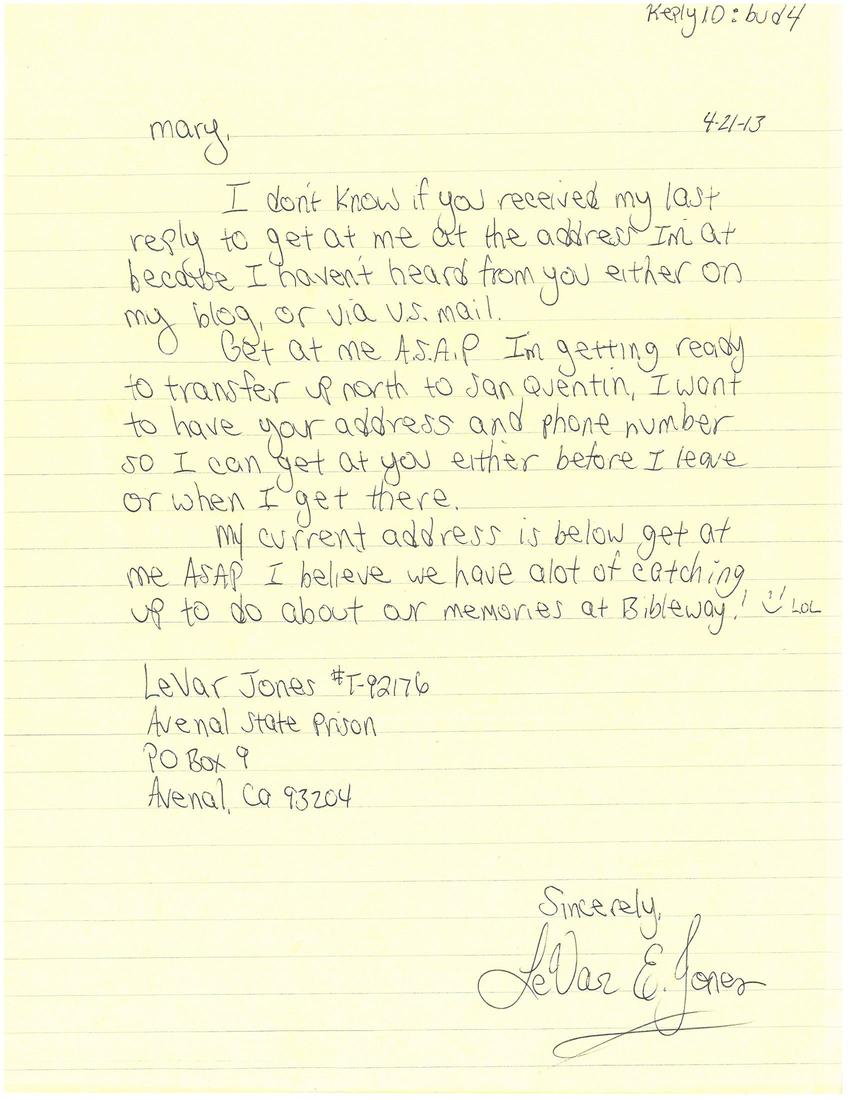 Reply ID: bud4
mary,
4-21-13
I don't know if you received my last
reply to get at me at the address Im at
because I haven't heard from you either on
my blog, or via U.S. mail.
Get at me A.S.A.P Im getting ready
to transfer up north to San Quentin, I want
to have your address and phone number
so I can get at you either before I leave
or when I get there.
My current address is below get at
me ASAP I believe we have alot of catching
up to do about our memories at Bibleway! LOL
LeVar Jones #T-92176
Avenal State Prison
PO Box 9
Avenal, Ca 93204
Sincerely,
LeVar E. Jones